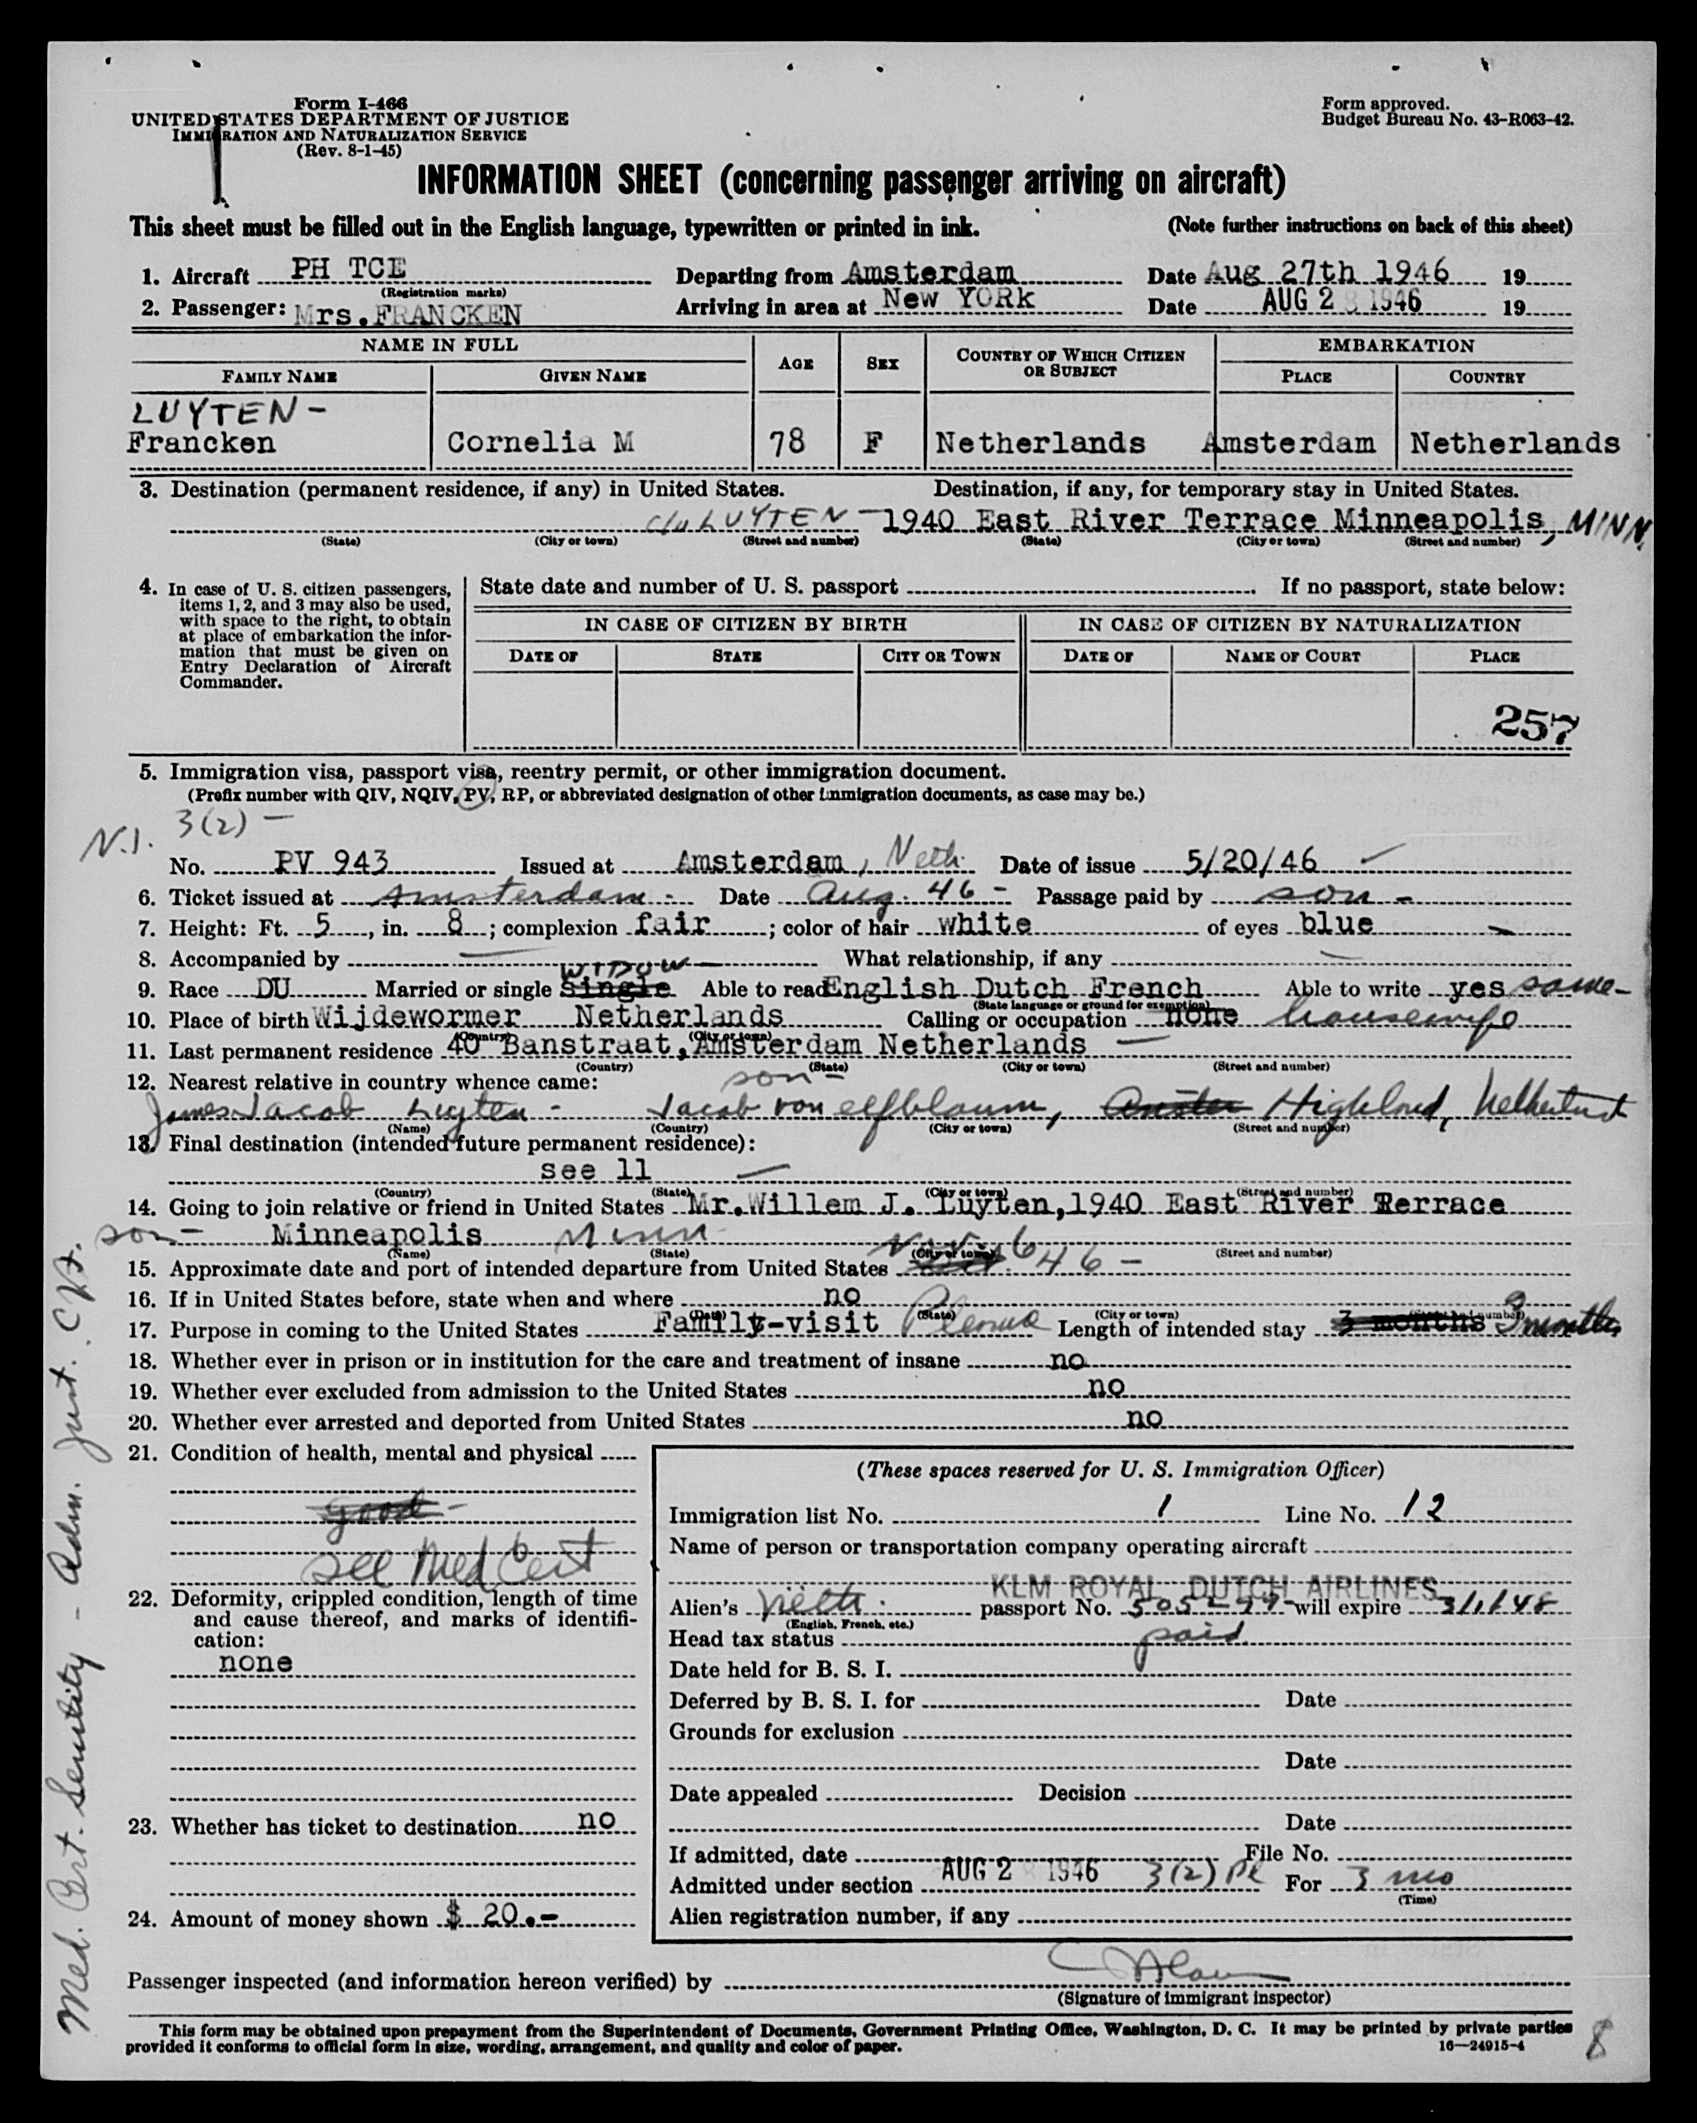 Form I-466
UNITED STATES DEPARTMENT OF JUSTICE
IMMIGRATION AND NATURALIZATION SERVICE
(Rev. 8-1-45)
Form approved.
Budget Bureau No. 43-R063-42.
INFORMATION SHEET (concerning passenger arriving on aircraft)
This sheet must be filled out in the English language, typewritten or printed in ink. (Note further instructions on back of this sheet)
1. Aircraft PH TCE Departing from Amsterdam Date Aug 27th 1946 19
(Registration marks)
2. Passenger: Mrs.FRANCKEN Arriving in area at New YORk Date AUG 28 1946 19
NAME IN FULL AGE SEX COUNTRY OF WHICH CITIZEN OR SUBJECT EMBARKATION
FAMILY NAME GIVEN NAME PLACE COUNTRY
LUYTEN -
Francken Cornelia M 78 F Netherlands Amsterdam Netherlands
3. Destination (permanent residence, if any) in United States. Destination, if any, for temporary stay in United States.
c/o LUYTEN - 1940 East River Terrace Minneapolis, MINN.
(State) (City or town) (Street and number) (State) (City or town) (Street and number)
4. In case of U. S. citizen passengers, items 1, 2, and 3 may also be used, with space to the right, to obtain at place of embarkation the information that must be given on Entry Declaration of Aircraft Commander.
State date and number of U. S. passport . If no passport, state below:
IN CASE OF CITIZEN BY BIRTH IN CASE OF CITIZEN BY NATURALIZATION
DATE OF STATE CITY OR TOWN DATE OF NAME OF COURT PLACE
257
5. Immigration visa, passport visa, reentry permit, or other immigration document.
(Prefix number with QIV, NQIV, PV, RP, or abbreviated designation of other immigration documents, as case may be.)
N.I. 3(2) -
No. PV 943 Issued at Amsterdam, Neth. Date of issue 5/20/46
6. Ticket issued at Amsterdam - Date Aug. 46 - Passage paid by son -
7. Height: Ft. 5, in. 8; complexion fair; color of hair white of eyes blue
8. Accompanied by What relationship, if any
WIDOW
9. Race DU Married or single single Able to read English Dutch French Able to write yes same -
(State language or ground for exemption)
10. Place of birth Wijdewormer Netherlands Calling or occupation none housewife
(Country) (City or town)
11. Last permanent residence 40 Banstraat, Amsterdam Netherlands
(Country) (State) (City or town) (Street and number)
12. Nearest relative in country whence came: son -
James Jacob Luyten - Jacob von
(Name) (Country) (City or town) (Street and number)
13. Final destination (intended future permanent residence):
see 11
(Country) (State) (City or town) (Street and number)
14. Going to join relative or friend in United States Mr.Willem J. Luyten,1940 East River Terrace
son - Minneapolis Minn.
(Name) (State) (City or town) (Street and number)
15. Approximate date and port of intended departure from United States Nov. 6 46 -
16. If in United States before, state when and where no
(Date) (State) (City or town) (Street and number)
17. Purpose in coming to the United States Family-visit Length of intended stay 3 months 3 months
18. Whether ever in prison or in institution for the care and treatment of insane no
19. Whether ever excluded from admission to the United States no
20. Whether ever arrested and deported from United States no
21. Condition of health, mental and physical
good -
see Med Cert
22. Deformity, crippled condition, length of time and cause thereof, and marks of identification:
none
23. Whether has ticket to destination no
24. Amount of money shown $ 20.-
(These spaces reserved for U. S. Immigration Officer)
Immigration list No. 1 Line No. 12
Name of person or transportation company operating aircraft
KLM ROYAL DUTCH AIRLINES
Alien's Neth. passport No. will expire 3/1/48
(English, French, etc.)
Head tax status paid
Date held for B. S. I.
Deferred by B. S. I. for Date
Grounds for exclusion
Date
Date appealed Decision
Date
If admitted, date File No.
Admitted under section AUG 28 1946 3(2) Pl For 3 mo
(Time)
Alien registration number, if any
Passenger inspected (and information hereon verified) by
(Signature of immigrant inspector)
This form may be obtained upon prepayment from the Superintendent of Documents, Government Printing Office, Washington, D. C. It may be printed by private parties
provided it conforms to official form in size, wording, arrangement, and quality and color of paper. 16—24915-4
8
Med. Cert. Senility - Adm.